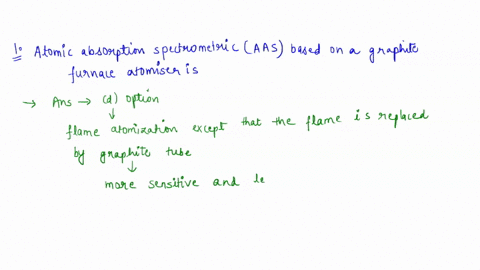 1. Atomic absorption spectrometric (AAS) based on a graphite
furnace atomiser is
→ Ans → (d) option
↓
flame atomization except that the flame is replaced
by graphite tube
↓
more sensitive and le